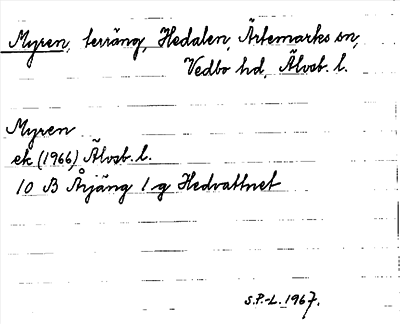 Myren, terräng, Hedalen, Ärtemarks sn,
Vedbo hd, Älvsb. l.
Myren
ek (1966) Älvsb. l.
10 B Årjäng 1 g Hedvattnet
S.P.-L. 1967.